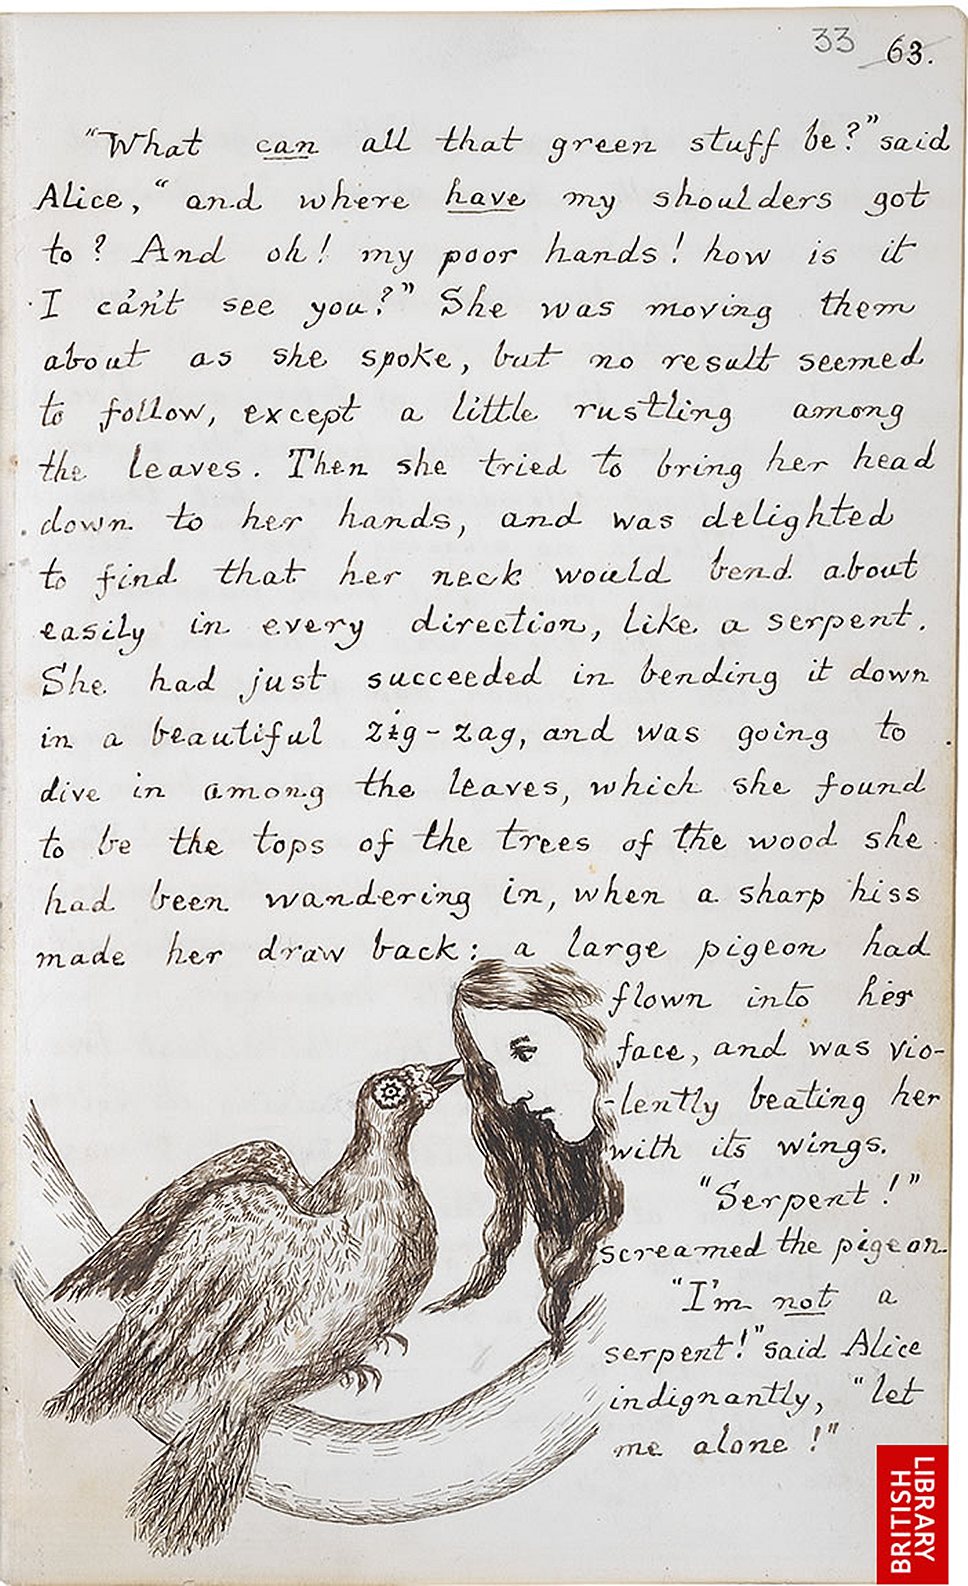 33 63.
"What can all that green stuff be?" said
Alice, "and where have my shoulders got
to? And oh! my poor hands! how is it
I ca'n't see you?" She was moving them
about as she spoke, but no result seemed
to follow, except a little rustling among
the leaves. Then she tried to bring her head
down to her hands, and was delighted
to find that her neck would bend about
easily in every direction, like a serpent.
She had just succeeded in bending it down
in a beautiful zig-zag, and was going to
dive in among the leaves, which she found
to be the tops of the trees of the wood she
had been wandering in, when a sharp hiss
made her draw back: a large pigeon had
flown into her
face, and was vio-
-lently beating her
with its wings.
"Serpent!"
screamed the pigeon.
"I'm not a
serpent!" said Alice
indignantly, "let
me alone!"
LIBRARY
BRITISH